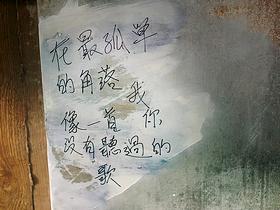 在最孤單
的角落 我
像一首 你
沒有聽過的
歌